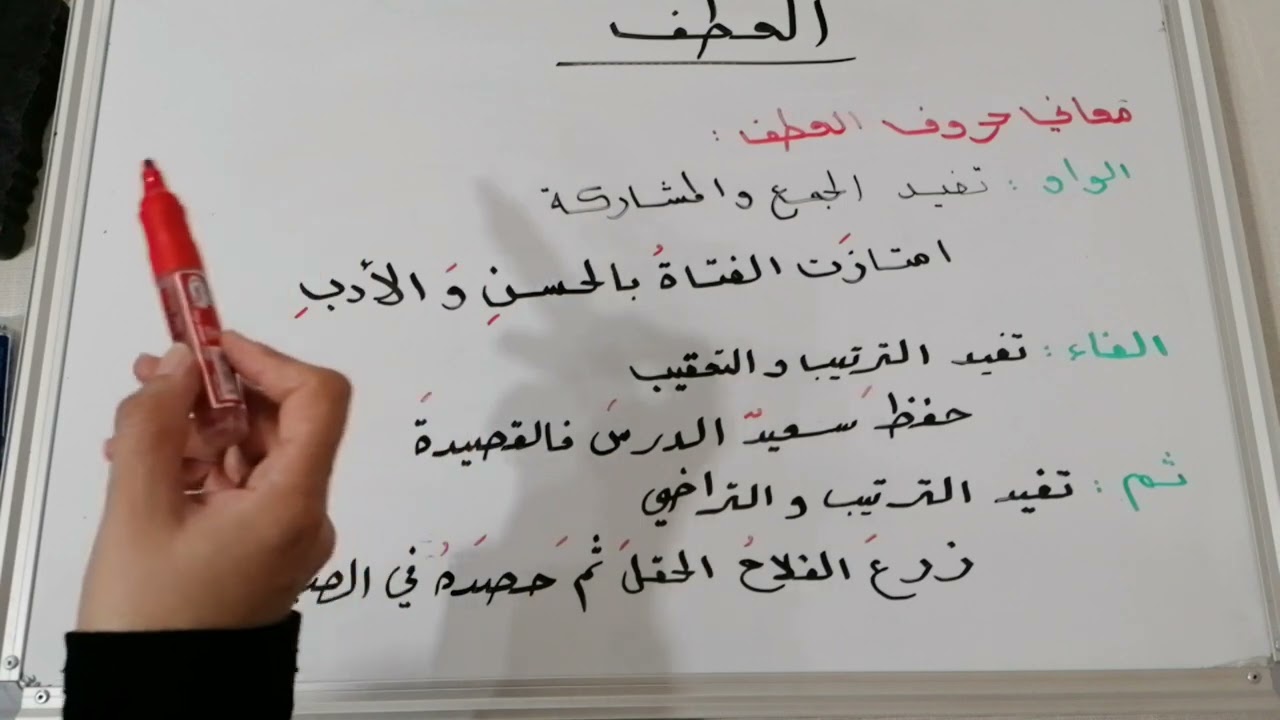 العطف
معاني حروف العطف :
الواو : تفيد الجمع والمشاركة
امتازَت الفتاةُ بالحسنِ وَ الأدبِ
الفاء : تفيد الترتيب و التعقيب
حفظَ سعيدٌ الدرسَ فالقصيدةَ
ثم : تفيد الترتيب و التراخي
زرعَ الفلاحُ الحقلَ ثْمَ حصَدَهُ في